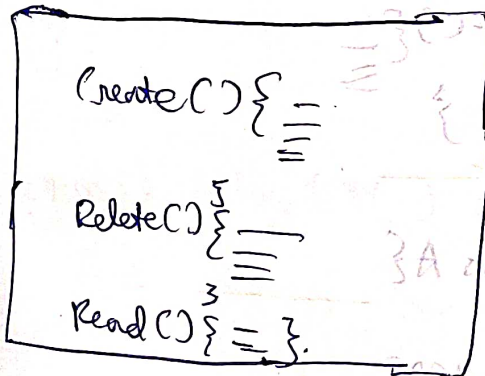 Create() {
}
Relete() {
}
Read() { }.